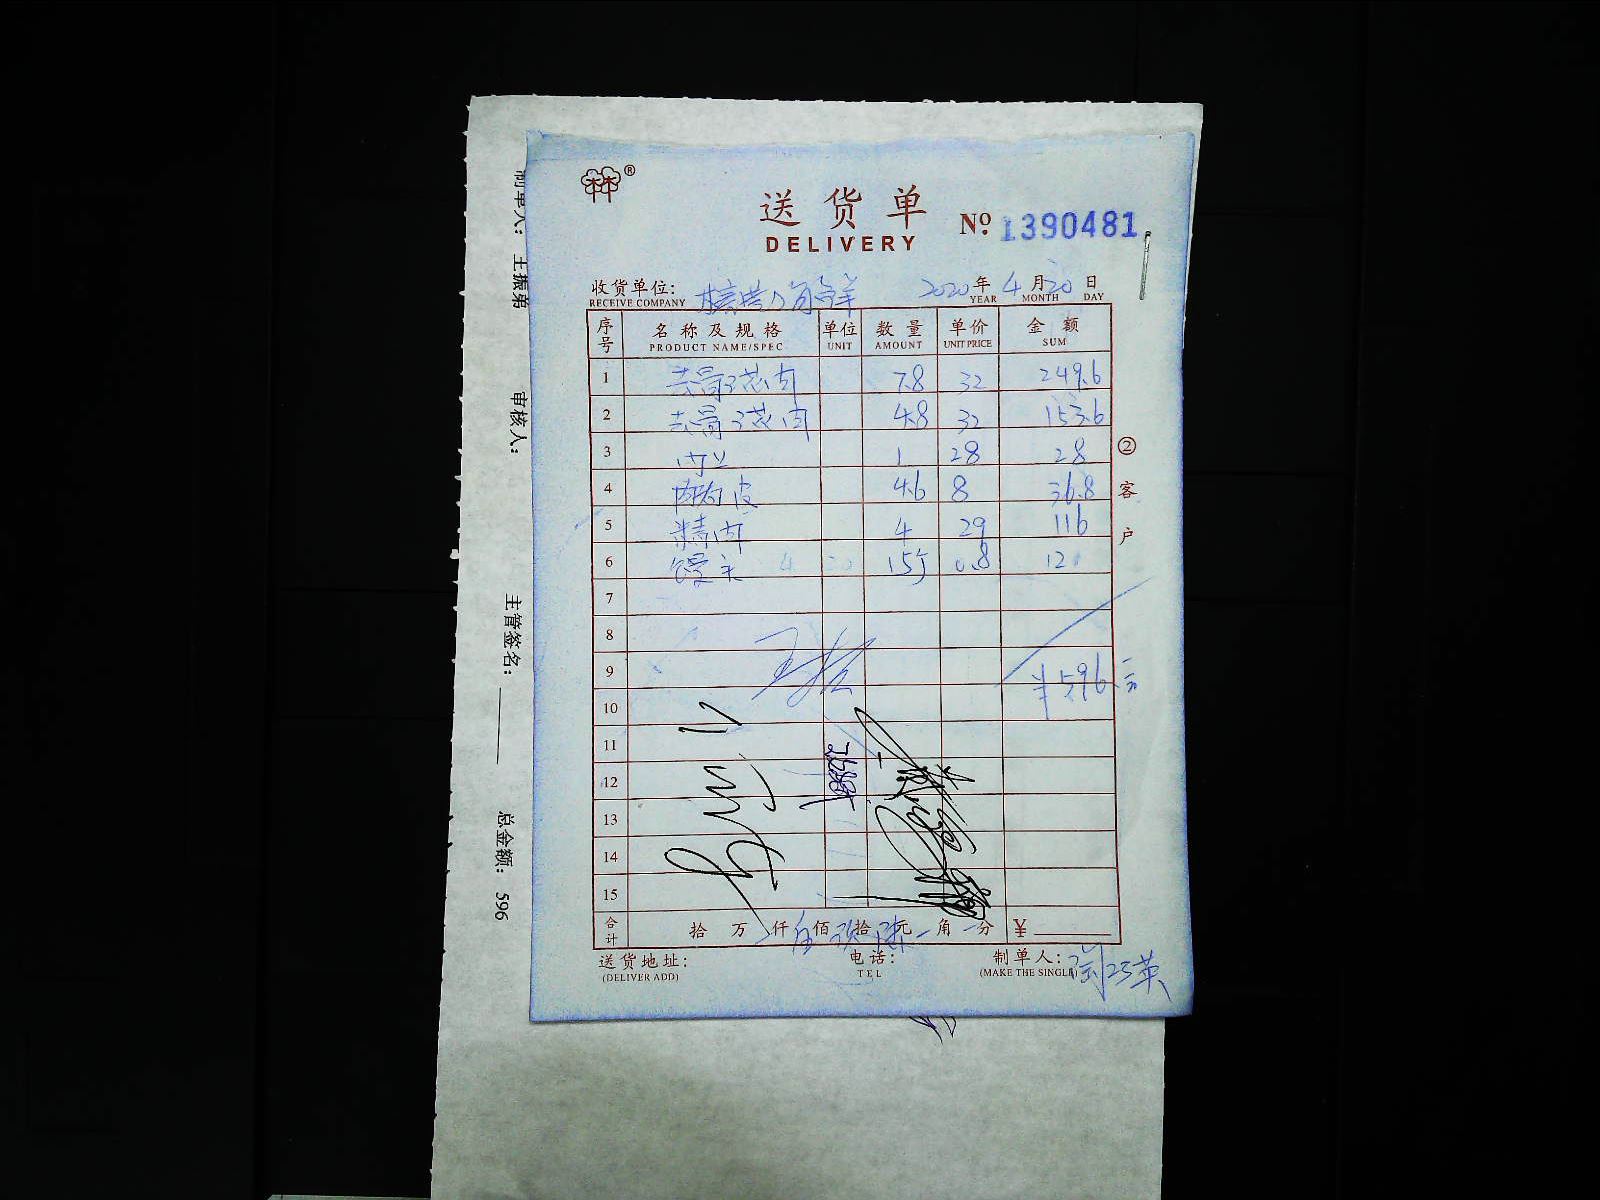 ®
送货单
DELIVERY
Nº 1390481
收货单位: 2020年4月20日
RECEIVE COMPANY YEAR MONTH DAY
序号 名称及规格 单位 数量 单价 金额
PRODUCT NAME/SPEC UNIT AMOUNT UNIT PRICE SUM
1 去骨子花肉 7.8 32 249.6
2 去骨子花肉 4.8 32 153.6
3 1 28 28
4 肉皮 4.6 8 36.8
5 精肉 4 29 116
6 馒头 15个 0.8 12
7
8
9 ¥596元
10
11
12
13
14
15
合计 拾 万 仟 伍佰 玖拾 陆元 角 分 ¥
送货地址: 电话: 制单人:
(DELIVER ADD) TEL (MAKE THE SINGLE)
②客户
制单人: 王振弟
审核人:
主管签名:
总金额: 596